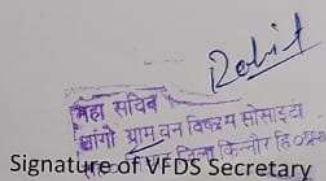 Rohit
महा सचिव
ग्राम वन विकास सोसाइटी
जिला किन्नौर हि०प्र०
Signature of VFDS Secretary